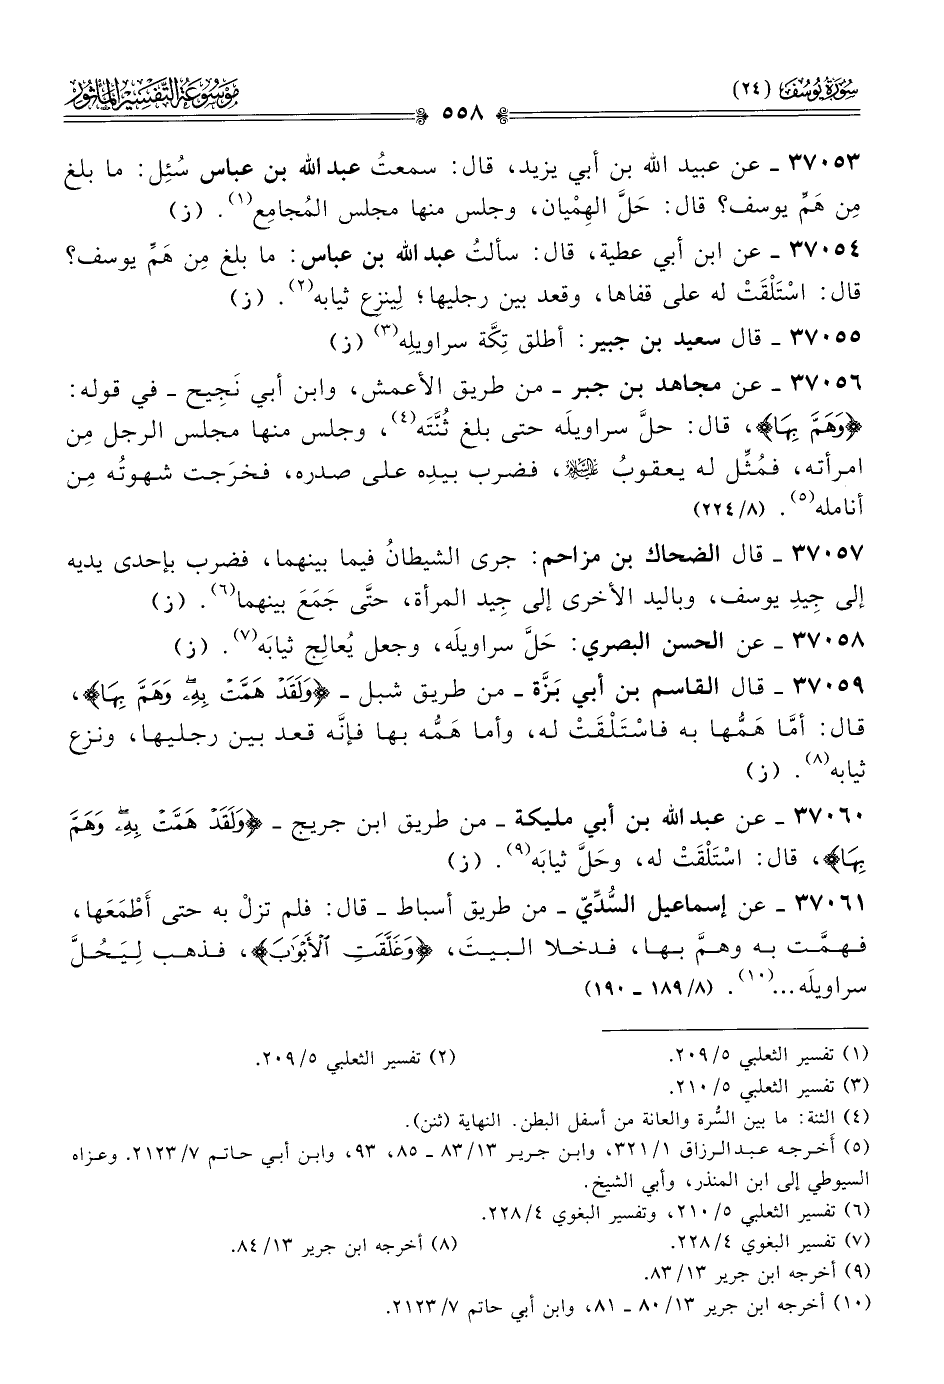 سُورَةُ يُوسُفَ (٢٤)
مَوْسُوعَةُ التَّفْسِيرِ المَأْثُورِ
٥٥٨
٣٧٠٥٣ ـ عن عبيد الله بن أبي يزيد، قال: سمعتُ عبد الله بن عباس سُئِل: ما بلغ
مِن هَمِّ يوسف؟ قال: حَلَّ الهِمْيان، وجلس منها مجلس المُجامِع(١). (ز)
٣٧٠٥٤ ـ عن ابن أبي عطية، قال: سألتُ عبد الله بن عباس: ما بلغ مِن هَمِّ يوسف؟
قال: اسْتَلْقَتْ له على قفاها، وقعد بين رجليها؛ لِينزِع ثيابه(٢). (ز)
٣٧٠٥٥ ـ قال سعيد بن جبير: أطلق تِكَّة سراويلِه(٣) (ز)
٣٧٠٥٦ ـ عن مجاهد بن جبر ـ من طريق الأعمش، وابن أبي نَجِيح ـ في قوله:
﴿وَهَمَّ بِهَا﴾، قال: حلَّ سراويلَه حتى بلغ ثُنَّتَه(٤)، وجلس منها مجلس الرجل مِن
امرأته، فمُثِّل له يعقوبُ عليه السلام، فضرب بيدِه على صدره، فخرَجت شهوتُه مِن
أنامله(٥). (٨/ ٢٢٤)
٣٧٠٥٧ ـ قال الضحاك بن مزاحم: جرى الشيطانُ فيما بينهما، فضرب بإحدى يديه
إلى جِيدِ يوسف، وباليد الأخرى إلى جِيد المرأة، حتَّى جَمَعَ بينهما(٦). (ز)
٣٧٠٥٨ ـ عن الحسن البصري: حَلَّ سراويلَه، وجعل يُعالِج ثيابَه(٧). (ز)
٣٧٠٥٩ ـ قال القاسم بن أبي بَزَّة ـ من طريق شبل ـ ﴿وَلَقَدْ هَمَّتْ بِهِۦۖ وَهَمَّ بِهَا﴾،
قال: أمَّا هَمُّها به فاسْتَلْقَتْ له، وأما هَمُّه بها فإنَّه قعد بين رجليها، ونزع
ثيابه(٨). (ز)
٣٧٠٦٠ ـ عن عبد الله بن أبي مليكة ـ من طريق ابن جريج ـ ﴿وَلَقَدْ هَمَّتْ بِهِۦۖ وَهَمَّ
بِهَا﴾، قال: اسْتَلْقَتْ له، وحَلَّ ثيابَه(٩). (ز)
٣٧٠٦١ ـ عن إسماعيل السُّدِّيّ ـ من طريق أسباط ـ قال: فلم تزلْ به حتى أَطْمَعَها،
فهمَّت به وهمَّ بها، فدخلا البيتَ، ﴿وَغَلَّقَتِ ٱلْأَبْوَٰبَ﴾، فذهب لِيَحُلَّ
سراويلَه...(١٠). (٨/ ١٨٩ ـ ١٩٠)
(١) تفسير الثعلبي ٥/ ٢٠٩.
(٢) تفسير الثعلبي ٥/ ٢٠٩.
(٣) تفسير الثعلبي ٥/ ٢١٠.
(٤) الثنة: ما بين السُّرة والعانة من أسفل البطن. النهاية (ثنن).
(٥) أخرجه عبدالرزاق ١/ ٣٢١، وابن جرير ١٣/ ٨٣ ـ ٨٥، ٩٣، وابن أبي حاتم ٧/ ٢١٢٣. وعزاه
السيوطي إلى ابن المنذر، وأبي الشيخ.
(٦) تفسير الثعلبي ٥/ ٢١٠، وتفسير البغوي ٤/ ٢٢٨.
(٧) تفسير البغوي ٤/ ٢٢٨.
(٨) أخرجه ابن جرير ١٣/ ٨٤.
(٩) أخرجه ابن جرير ١٣/ ٨٣.
(١٠) أخرجه ابن جرير ١٣/ ٨٠ ـ ٨١، وابن أبي حاتم ٧/ ٢١٢٣.